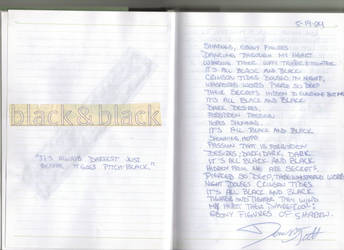 black & black
"It's always darkest just
before it goes pitch black"
5-19-04
Shadows, ebony figures
Dancing through my heart
Weaving their way
It's all black and black
Crimson tides doused in night,
Whispered words pierce so deep
Their secrets hidden
It's all black and black
Dark desires,
Forbidden passion
Hopes showing.
It's all black and black
Showing hope
Passion that is forbidden
Desires, dark, dark, dark
It's all black and black
Hidden from me are secrets,
Pierced so deep, these whispered words
Night douses crimson tides
It's all black and black
Together and together they wind
My heart their dancefloor:
Ebony figures of shadow.